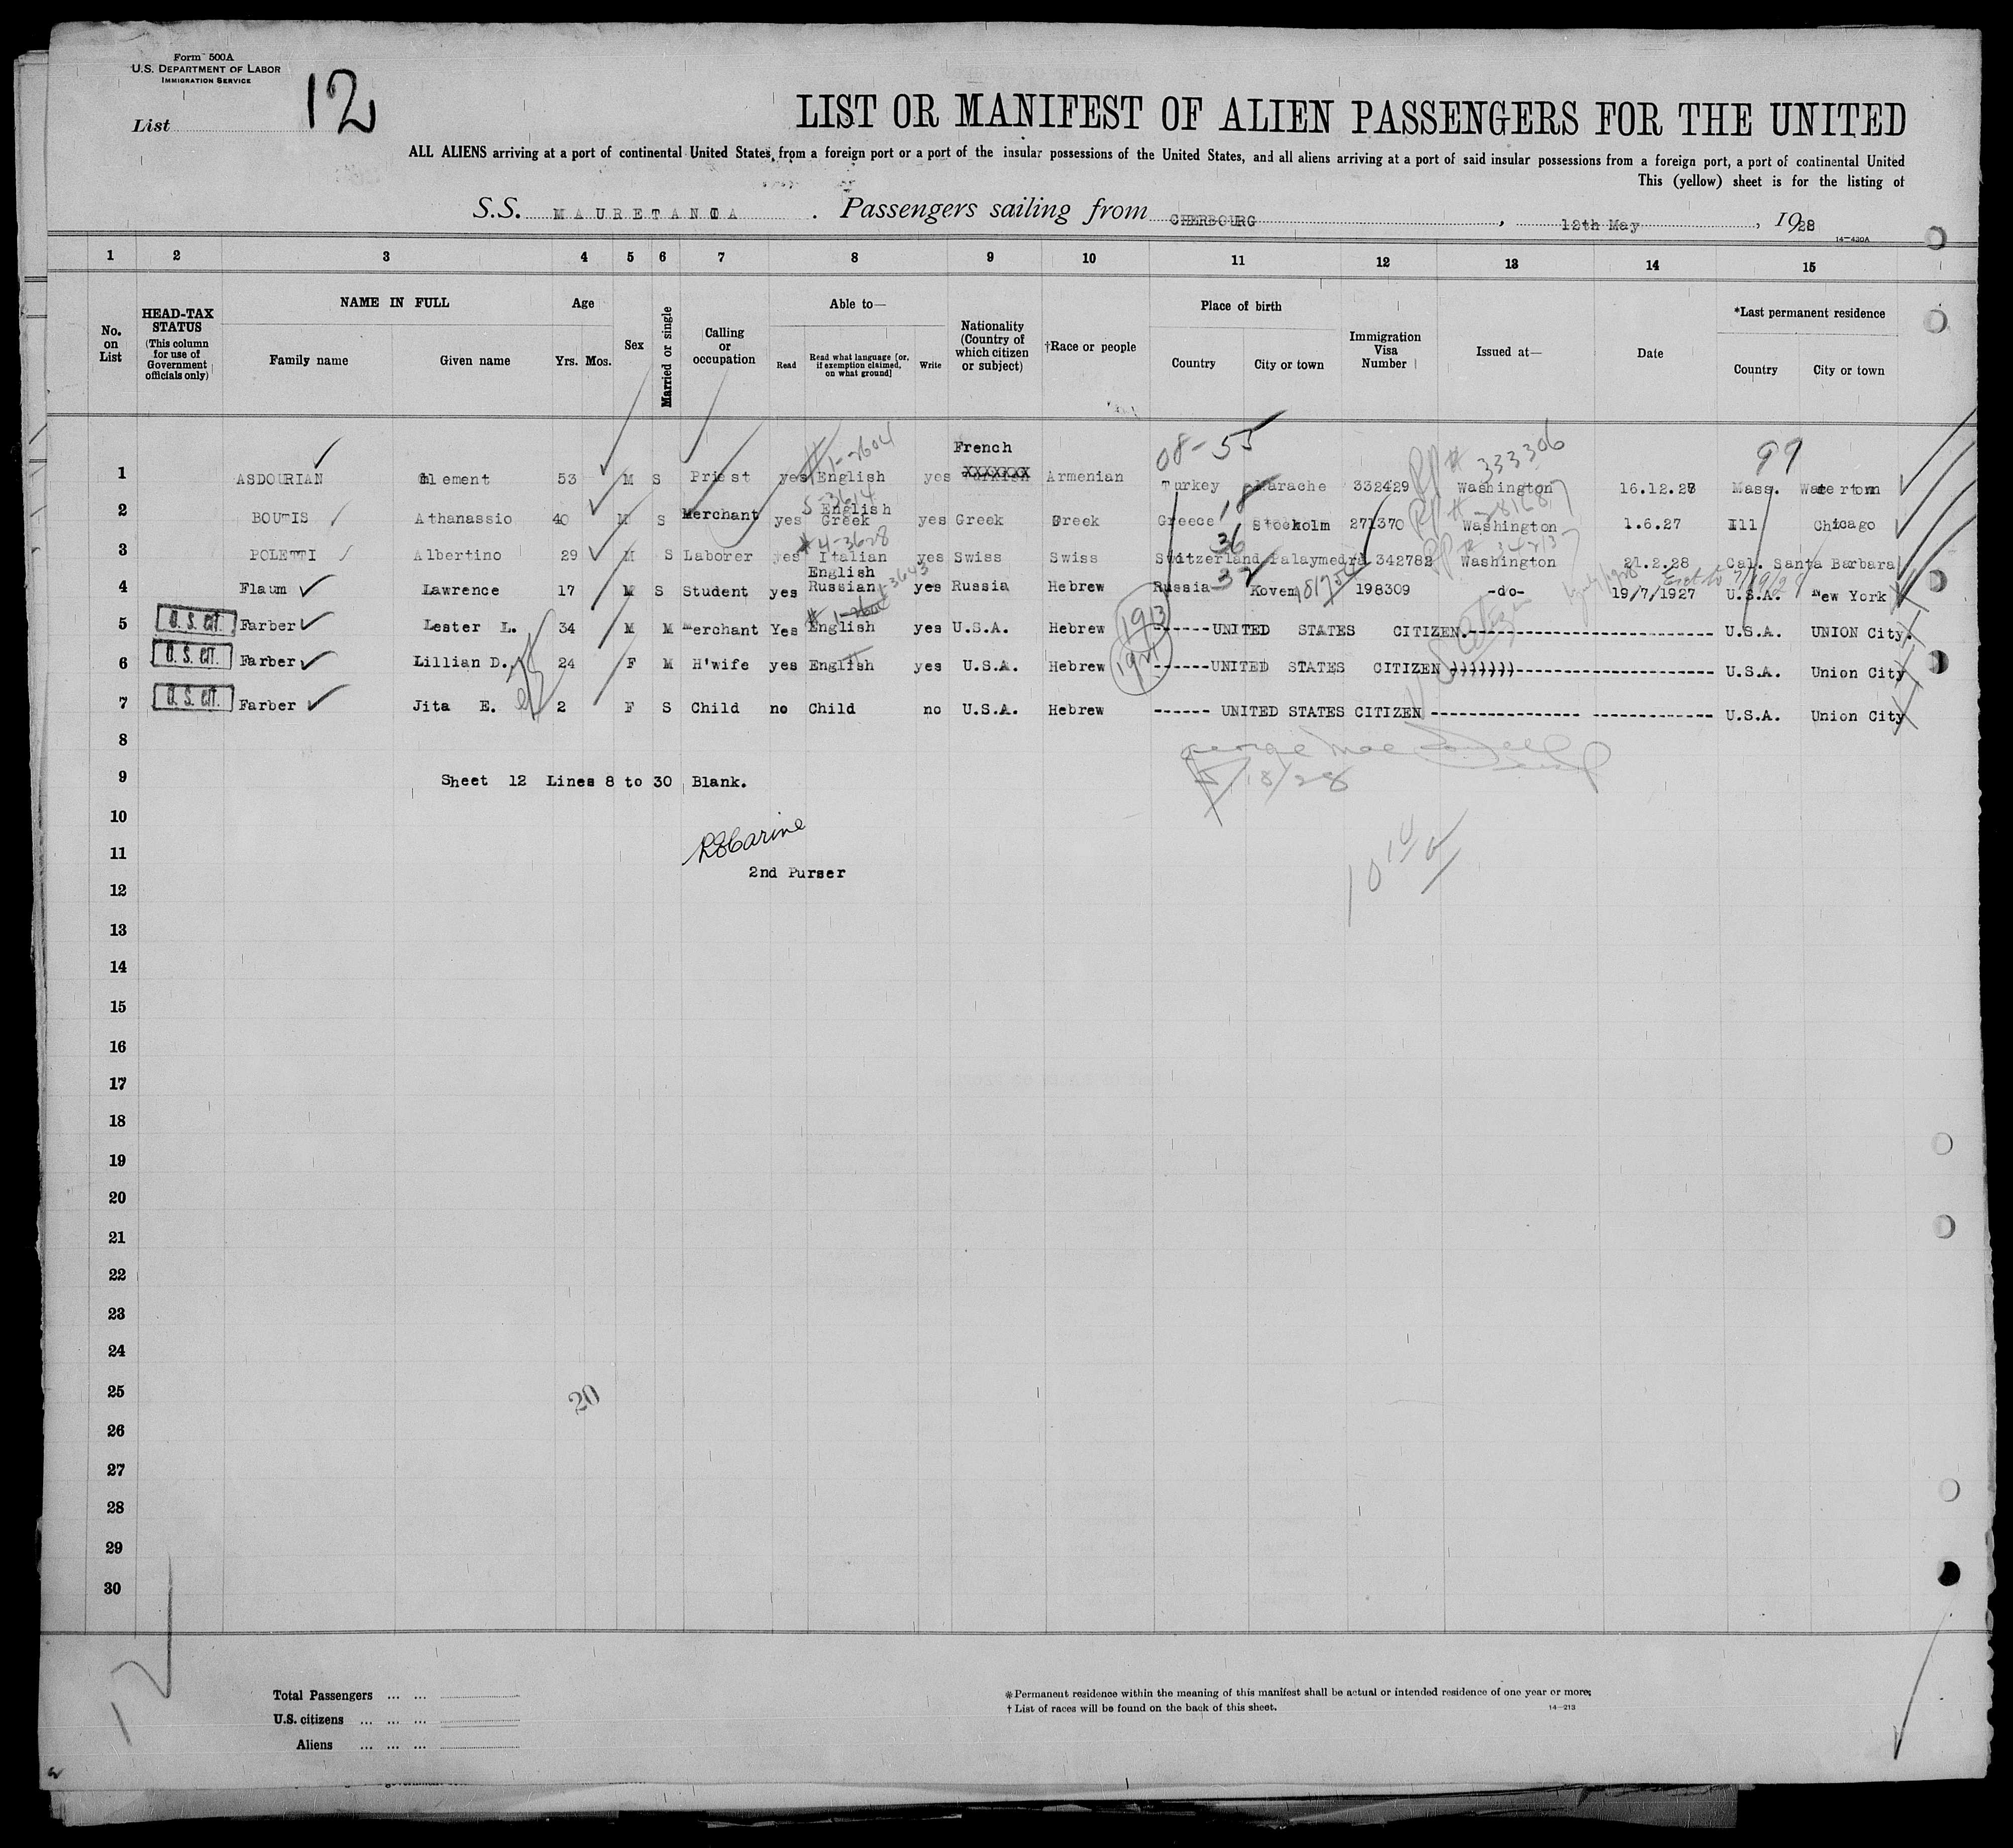 Form 500A
U.S. DEPARTMENT OF LABOR
IMMIGRATION SERVICE
List 12
LIST OR MANIFEST OF ALIEN PASSENGERS FOR THE UNITED
ALL ALIENS arriving at a port of continental United States from a foreign port or a port of the insular possessions of the United States, and all aliens arriving at a port of said insular possessions from a foreign port, a port of continental United
This (yellow) sheet is for the listing of
S.S. MAURETANIA . Passengers sailing from CHERBOURG , 12th May , 1928
14—430A
1 2 3 4 5 6 7 8 9 10 11 12 13 14 15
No. on List
HEAD-TAX STATUS (This column for use of Government officials only)
NAME IN FULL
Family name Given name
Age
Yrs. Mos.
Sex
Married or single
Calling or occupation
Able to—
Read Read what language [or, if exemption claimed, on what ground] Write
Nationality (Country of which citizen or subject)
†Race or people
Place of birth
Country City or town
Immigration Visa Number
Issued at—
Date
*Last permanent residence
Country City or town
#1-3604 French 08-55 RP# 333306 99
1 ASDOURIAN Clement 53 M S Priest yes English yes XXXXXXX Armenian Turkey Marache 332429 Washington 16.12.28 Mass. Watertown
5-3614 English
2 BOUTIS Athanassio 40 M S Merchant yes Greek yes Greek Greek Greece Stockolm 271370 Washington 1.6.27 Ill Chicago
#4-3628 36
3 POLETTI Albertino 29 M S Laborer yes Italian yes Swiss Swiss Switzerland Palaymedra 342782 Washington 21.2.28 Cal. Santa Barbara
English
4 Flaum Lawrence 17 M S Student yes Russian yes Russia Hebrew Russia 37 Koven 198309 -do- 19/7/1927 U.S.A. New York
5 U.S. CIT. Farber Lester L. 34 M M Merchant Yes English yes U.S.A. Hebrew ------UNITED STATES CITIZEN.------ U.S.A. UNION City.
6 U.S. CIT. Farber Lillian D. 24 F M H'wife yes English yes U.S.A. Hebrew ------UNITED STATES CITIZEN )))))))------ U.S.A. Union City
7 U.S. CIT. Farber Jita E. 2 F S Child no Child no U.S.A. Hebrew ------ UNITED STATES CITIZEN ------ U.S.A. Union City
8
9 Sheet 12 Lines 8 to 30 Blank.
5/18/28
10
11
2nd Purser
12
13
14
15
16
17
18
19
20
21
22
23
24
25
20
26
27
28
29
30
12
Total Passengers ... ...
U.S. citizens ... ... ...
Aliens ... ... ...
*Permanent residence within the meaning of this manifest shall be actual or intended residence of one year or more.
† List of races will be found on the back of this sheet.
14—213